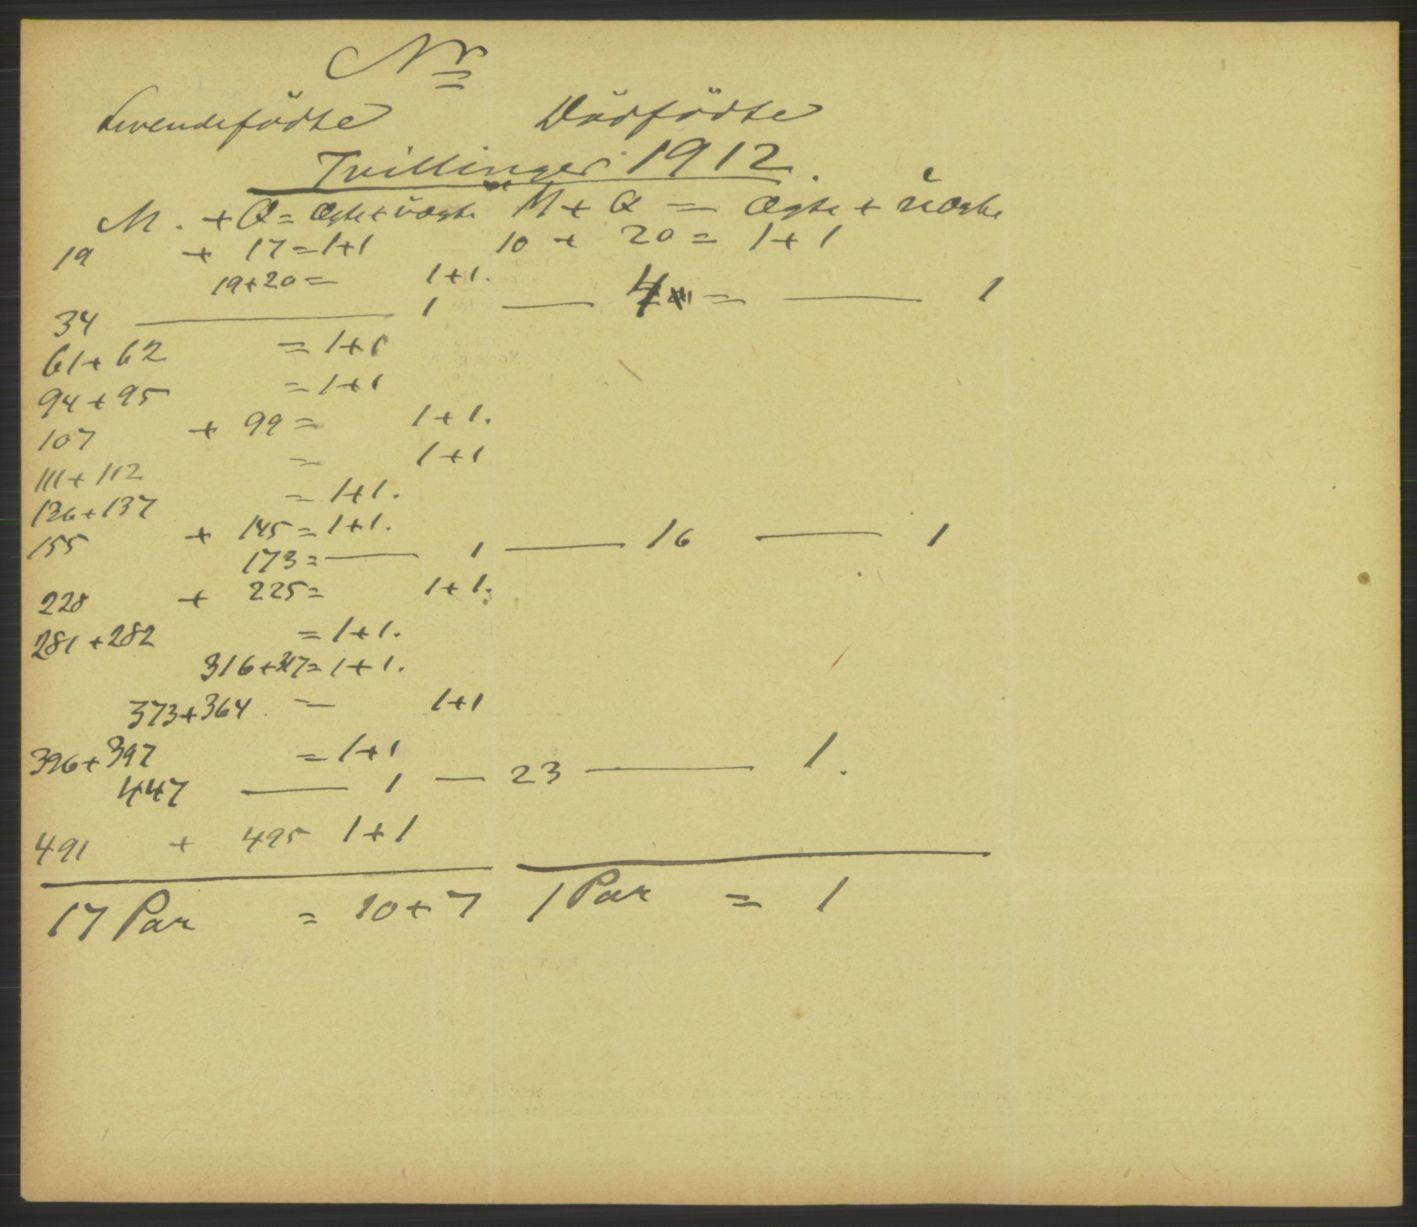 Nr
Levendefödte Dödfödte
Tvillinger 1912.
M. + Q = Ægte + Uægte M + Q = Ægte + Uægte
19 + 17 = 1+1 10 + 20 = 1+1
19+20 = 1+1.
34 — 1 — 4 = — 1
61+62 = 1+1
94+95 = 1+1
107 + 99 = 1+1.
111+112 = 1+1
136+137 = 1+1.
155 + 145 = 1+1.
173 = — 1 — 16 — 1
228 + 225 = 1+1.
281+282 = 1+1.
316+317 = 1+1.
373+364 = 1+1
396+397 = 1+1
447 — 1 — 23 — 1.
491 + 495 1+1
17 Par = 10+7 1 Par = 1